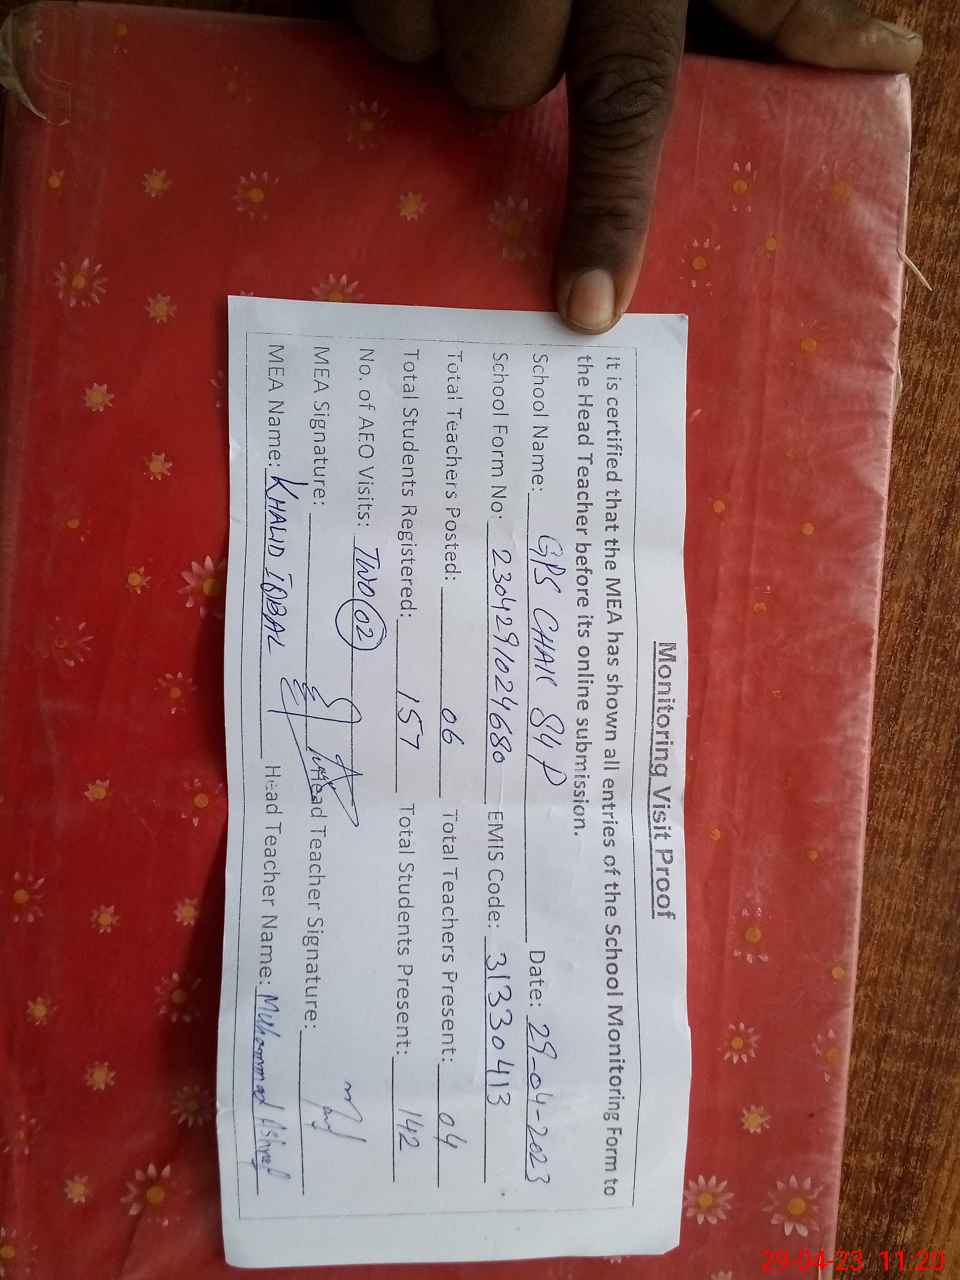 Monitoring Visit Proof
it is certified that the MEA has shown all entries of the School Monitoring Form to
the Head Teacher before its online submission.
School Name: GPS CHAK 84 P Date: 29-04-2023
School Form No: 2304291024680 EMIS Code: 31330413
Total Teachers Posted: 06 Total Teachers Present: 04
Total Students Registered: 157 Total Students Present: 142
No. of AEO Visits: TWO 02
MEA Signature: Head Teacher Signature:
MEA Name: KHALID IQBAL Head Teacher Name: Muhammad Ashraf
29-04-23 11:20